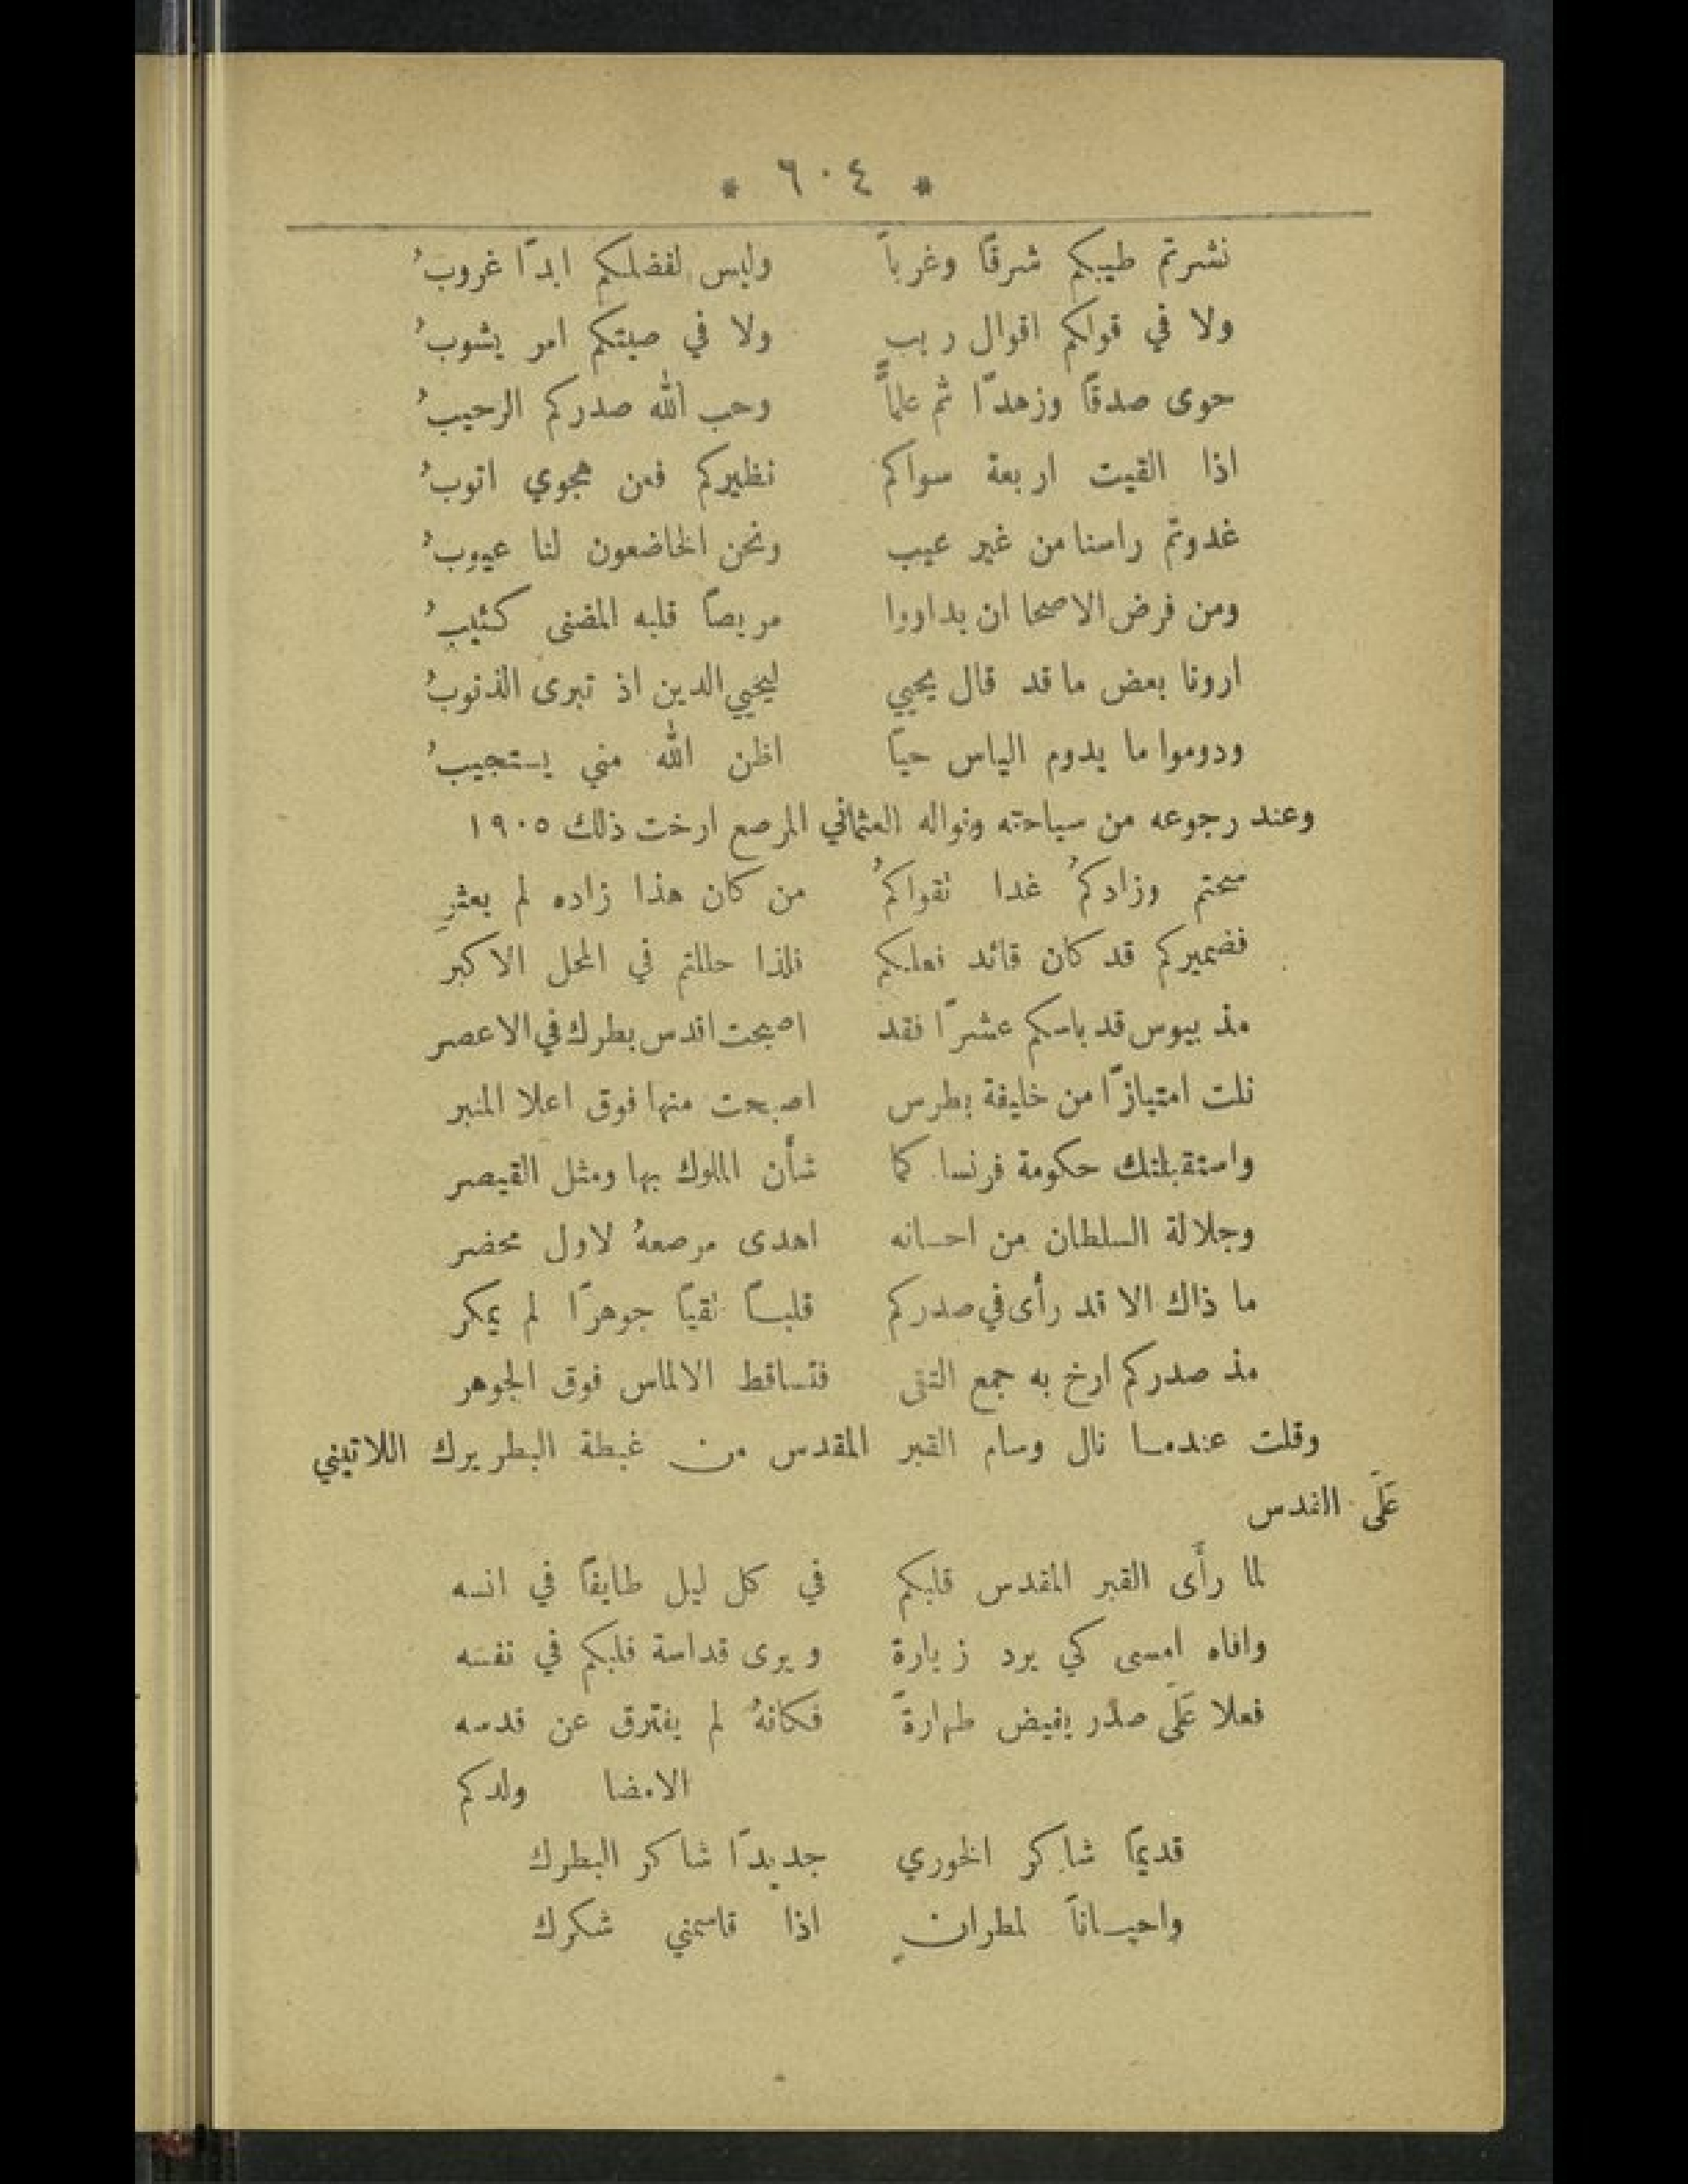 * ٦٠٤ *
نشرتم طيبكم شرقًا وغرباً وليس لفضلكم ابدًا غروبُ
ولا في قولكم اقوال ريب ولا في صيتكم امر يشوبُ
حوى صدقًا وزهدًا ثم علماً وحب الله صدركم الرحيبُ
اذا القيت اربعة سواكم نظيركم فعن هجوي اتوبُ
غدوتم راسنا من غير عيب ونحن الخاضعون لنا عيوبُ
ومن فرض الاصحا ان يداووا مريضًا قلبه المضنى كئيبُ
ارونا بعض ما قد قال يحيي ليحيي الدين اذ تبرى الذنوبُ
ودوموا ما يدوم الياس حيًا اظن الله مني يستجيبُ
وعند رجوعه من سياحته ونواله العثماني المرصع ارخت ذلك ١٩٠٥
سحتم وزادكمُ غدا تقواكمُ من كان هذا زاده لم يعثرِ
فضميركم قد كان قائد فعلكم فلذا حللتم في المحل الاكبر
مذ بيوس قد باسكم عشرًا فقد اصبحت اقدس بطرك في الاعصر
نلت امتيازًا من خليفة بطرس اصبحت منها فوق اعلا المنبر
واستقبلتك حكومة فرنسا كما شأن الملوك بها ومثل القيصر
وجلالة السلطان من احسانه اهدى مرصعهُ لاول محضر
ما ذاك الا قد رأى في صدركم قلبـًا نقيًا جوهرًا لم يمكر
مذ صدركم ارخ به جمع التقى فتساقط الالماس فوق الجوهر
وقلت عندما نال وسام القبر المقدس من غبطة البطريرك اللاتيني
عَلَى القدس
لما رأَى القبر المقدس قلبكم في كل ليل طايفًا في انسه
وافاه امسى كي يرد زيارة ويرى قداسة قلبكم في نفسه
فعلا عَلَى صدر يفيض طهارةً فكانهُ لم يفترق عن قدسه
الامضا ولدكم
قديمًا شاكر الخوري جديدًا شاكر البطرك
واحيـاناً لمطرانٍ اذا قاسمني شكرك